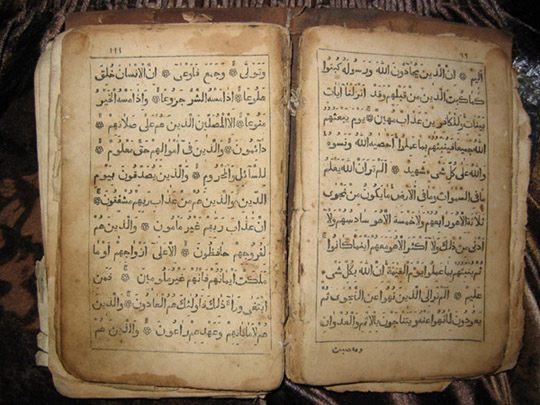 اليم ۞ ان الذين يحادون الله ورسوله كبتوا
كما كبت الذين من قبلهم وقد انزلنا ايات
بينات وللكافرين عذاب مهين ۞ يوم يبعثهم
الله جميعا فينبئهم بما عملوا احصيه الله ونسوه
والله على كل شيء شهيد ۞ الم تر ان الله يعلم
ما في السموات وما في الارض ما يكون من نجوى
ثلاثة الا هو رابعهم ولا خمسة الا هو سادسهم ولا
ادنى من ذلك ولا اكثر الا هو معهم اينما كانوا
ثم ينبئهم بما عملوا يوم القيمة ان الله بكل شيء
عليم ۞ الم تر الى الذين نهوا عن النجوى ثم
يعودون لما نهوا عنه ويتناجون بالاثم والعدوان
ومعصيت
وتولى ۞ وجمع فاوعى ۞ ان الانسان خلق
هلوعا ۞ اذا مسه الشر جزوعا ۞ واذا مسه الخير
منوعا ۞ الا المصلين الذين هم على صلاتهم
دائمون ۞ والذين في اموالهم حق معلوم ۞
للسائل والمحروم ۞ والذين يصدقون بيوم
الدين والذين هم من عذاب ربهم مشفقون ۞
ان عذاب ربهم غير مامون ۞ والذين هم
لفروجهم حافظون ۞ الا على ازواجهم او ما
ملكت ايمانهم فانهم غير ملومين ۞ فمن
ابتغى وراء ذلك فاولئك هم العادون ۞ والذين
هم لاماناتهم وعهدهم راعون ۞ والذين هم